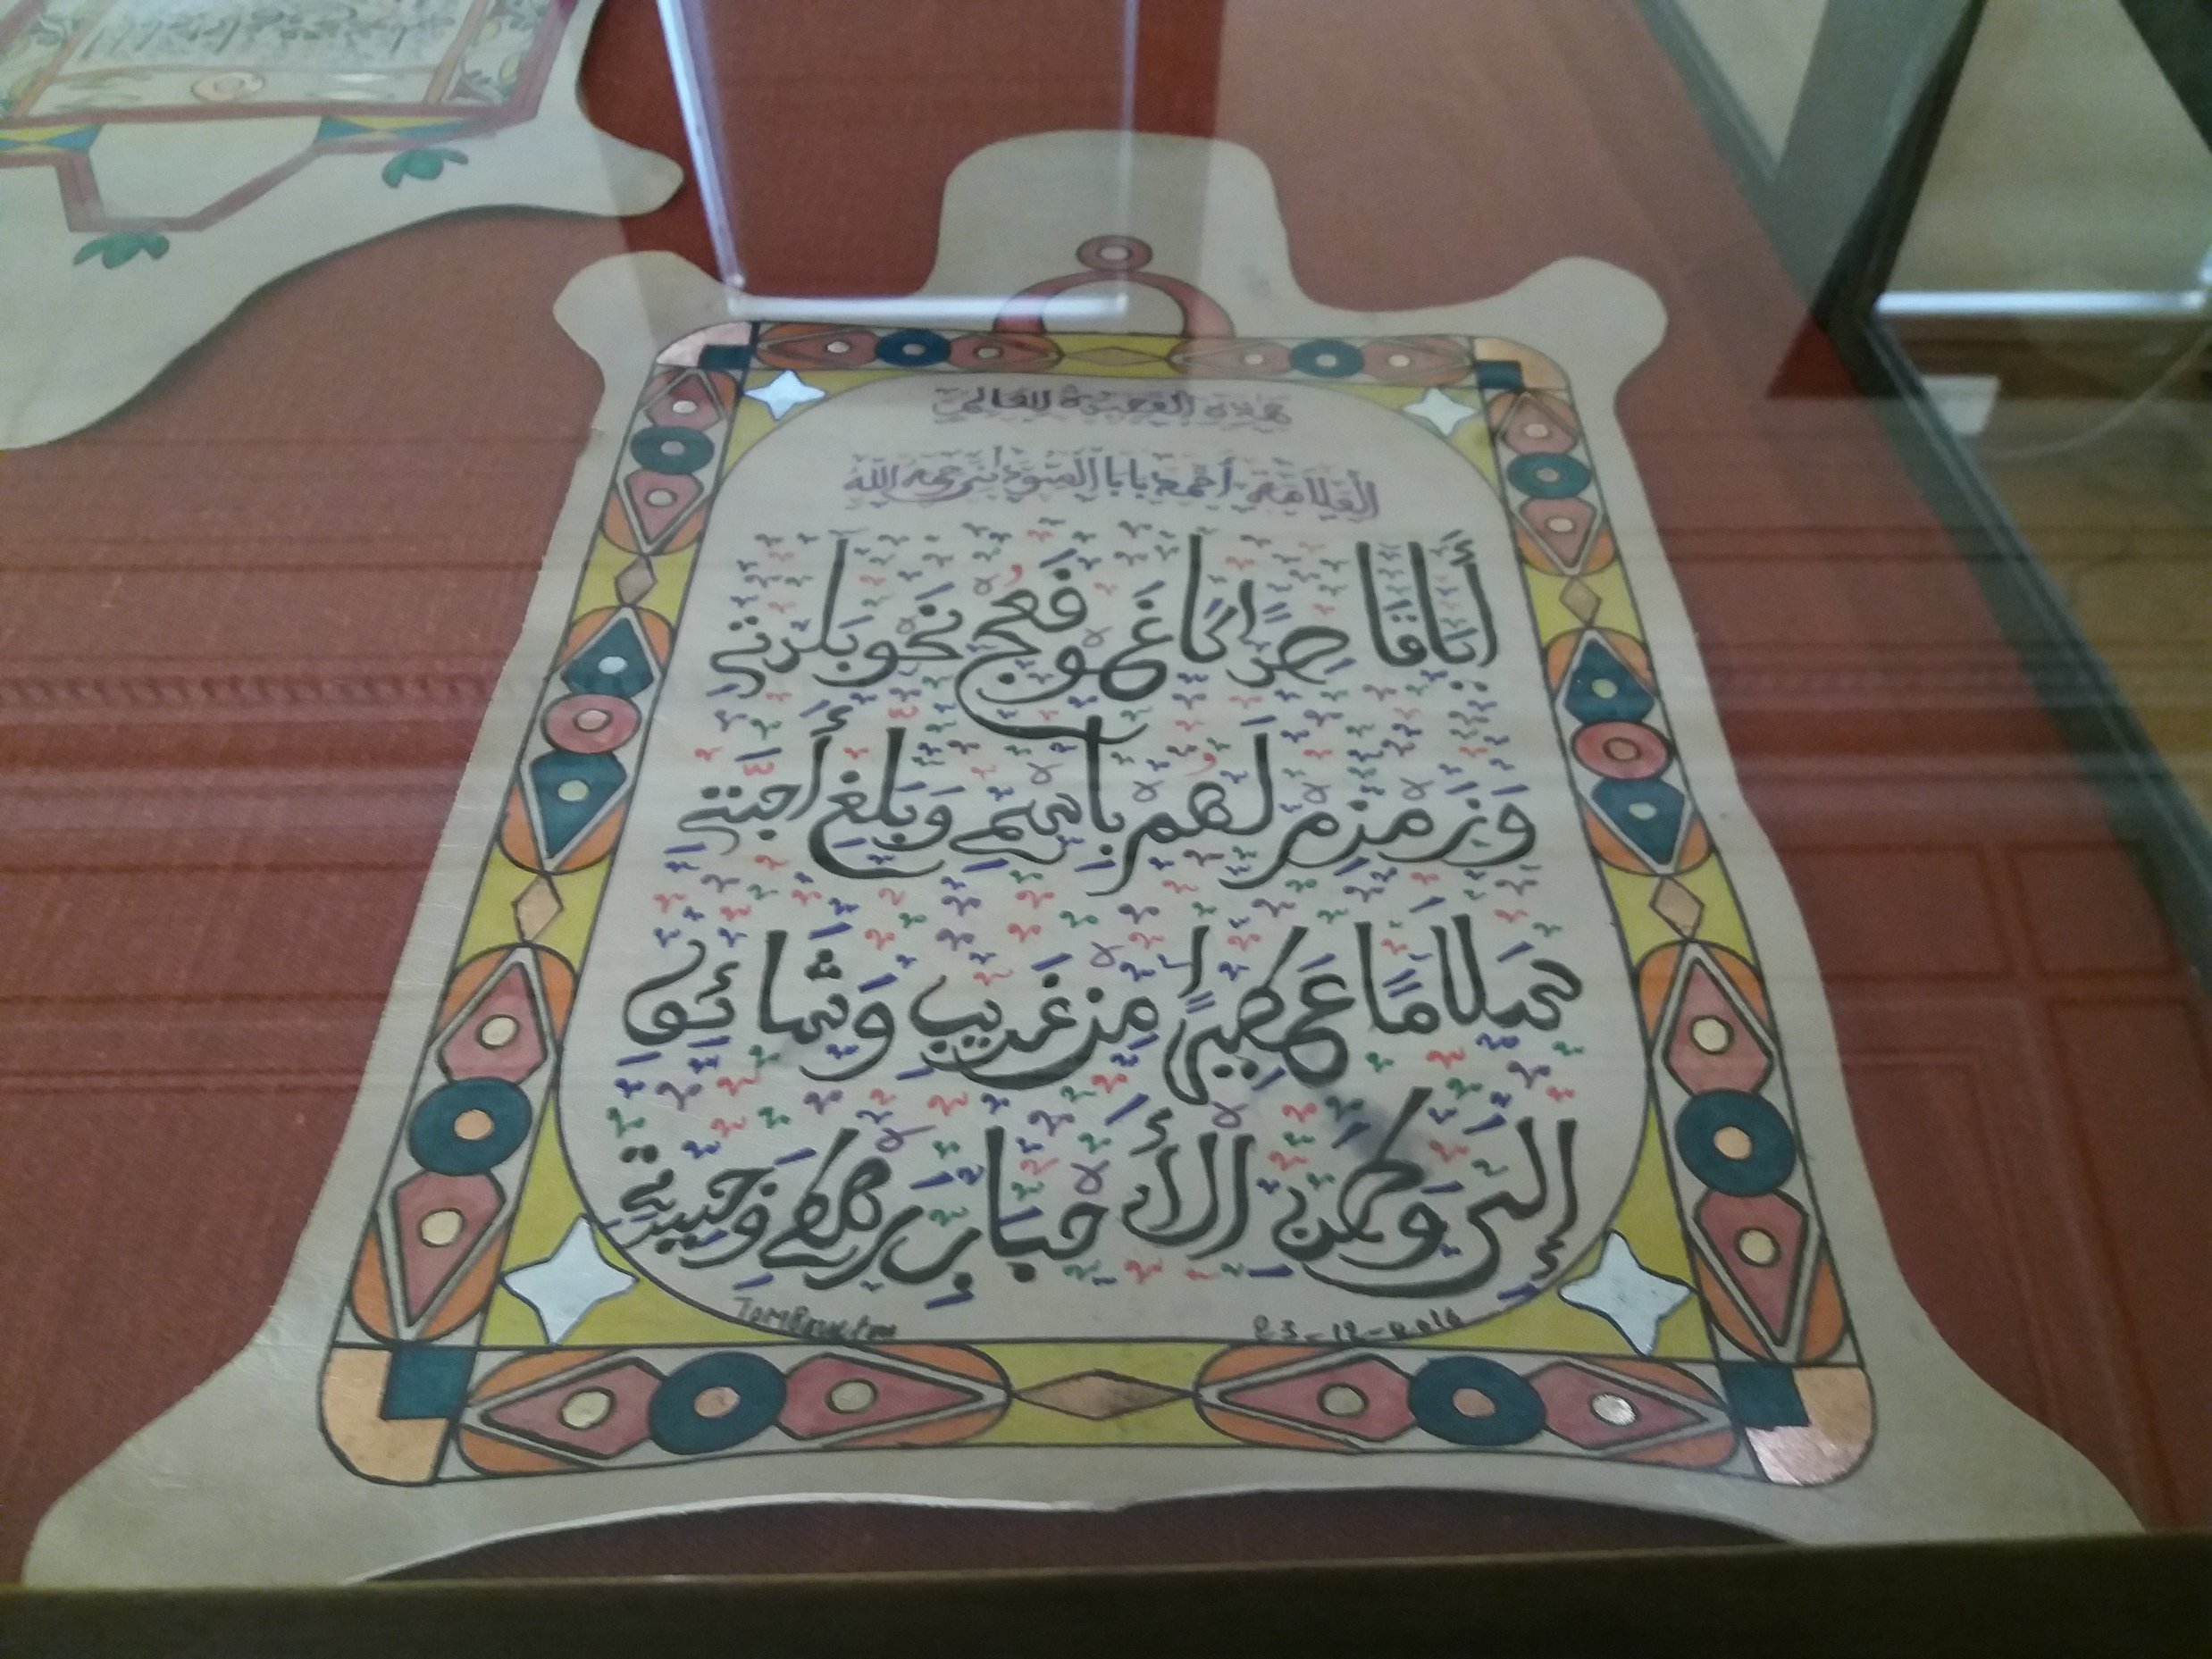 هذه القصيدة للعالم
العلامة أحمد بابا السوداني رحمه الله
أَيَا قَاصِدًا كَاغُو فَعُجْ نَحْوَ بَلْدَتِي
وَزَمْزِمْ لَهُمْ بِاسْمِي وَبَلِّغْ أَحِبَّتِي
سَلَامًا عَطِيرًا مِنْ غَرِيبٍ وَشَائِقٍ
إِلَى وَطَنِ الْأَحْبَابِ رَهْطِي وَجِيرَتِي
TOMBouctou 23-12-2016